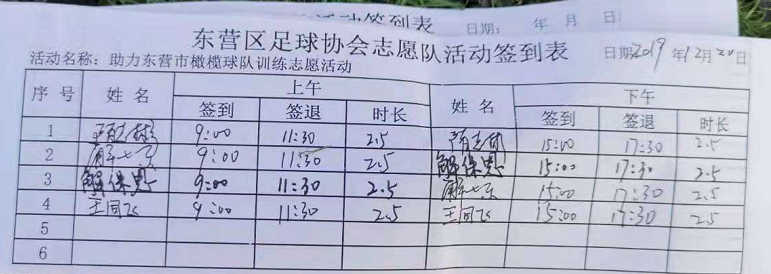 活动签到表 日期: 年 月 日
东营区足球协会志愿队活动签到表 日期2019年12月20日
活动名称：助力东营市橄榄球队训练志愿活动
序号 姓名 上午 姓名 下午
签到 签退 时长 签到 签退 时长
1 9:00 11:30 2.5 15:00 17:30 2.5
2 9:00 11:30 2.5 解保忠 15:00 17:30 2.5
3 解保忠 9:00 11:30 2.5 15:00 17:30 2.5
4 王同飞 9:00 11:30 2.5 王同飞 15:00 17:30 2.5
5
6